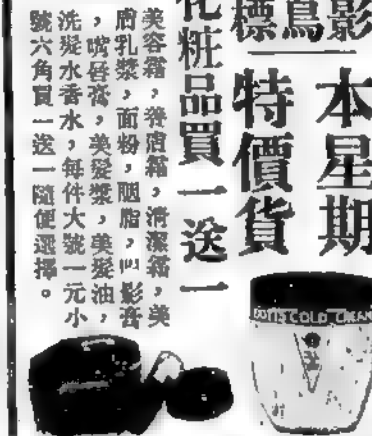 影
本星期
標鳥
特價貨
化粧品買一送一
美容霜，養膚霜，清潔霜，美
膚乳漿，面粉，胭脂，眼影膏
，嘴唇膏，美髮漿，美髮油，
洗髮水香水，每件大號一元小
號六角買一送一隨便選擇。
COLD CREAM